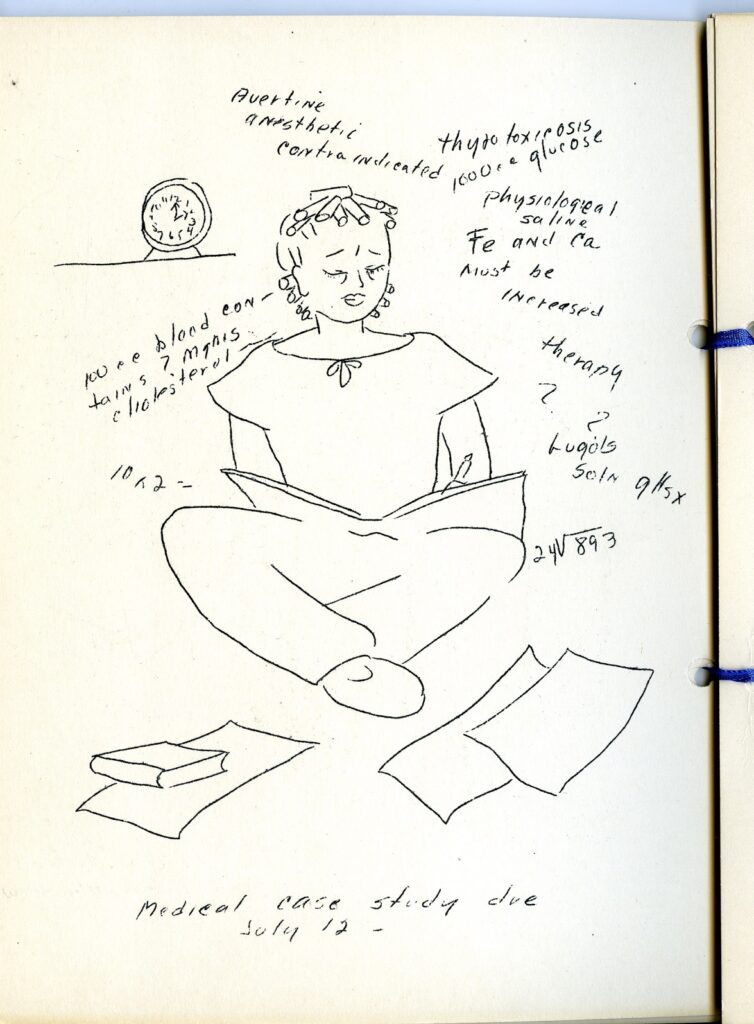 Avertine
anesthetic
contraindicated
thyrotoxicosis
1000cc glucose
physiological
saline
Fe and Ca
Must be
increased
therapy
?
?
Lugols
Soln
100cc blood con-
tains ? mgms
cholesterol
10 x 2 =
24√893
Medical case study due
July 12 -